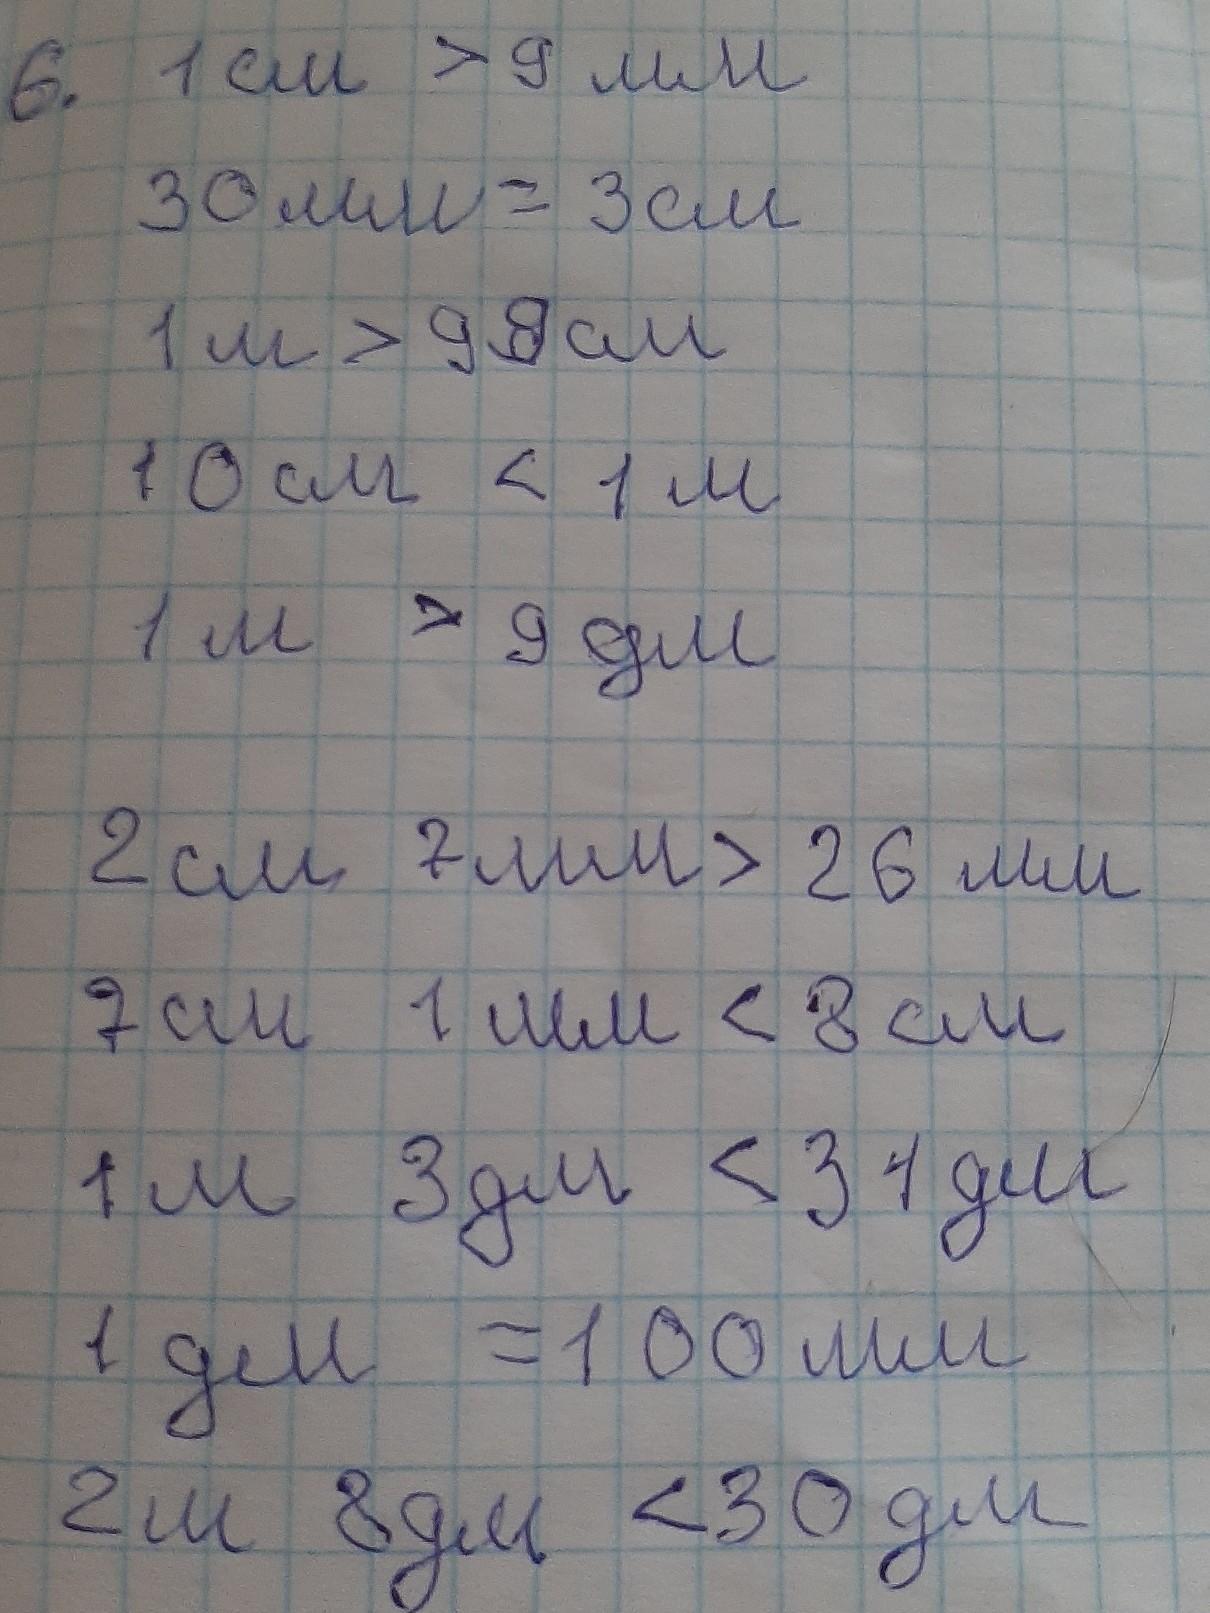 6. 1 см > 9 мм
30 мм = 3 см
1 м > 98 см
10 см < 1 м
1 м > 9 дм
2 см 7 мм > 26 мм
7 см 1 мм < 8 см
1 м 3 дм < 31 дм
1 дм = 100 мм
2 м 8 дм < 30 дм